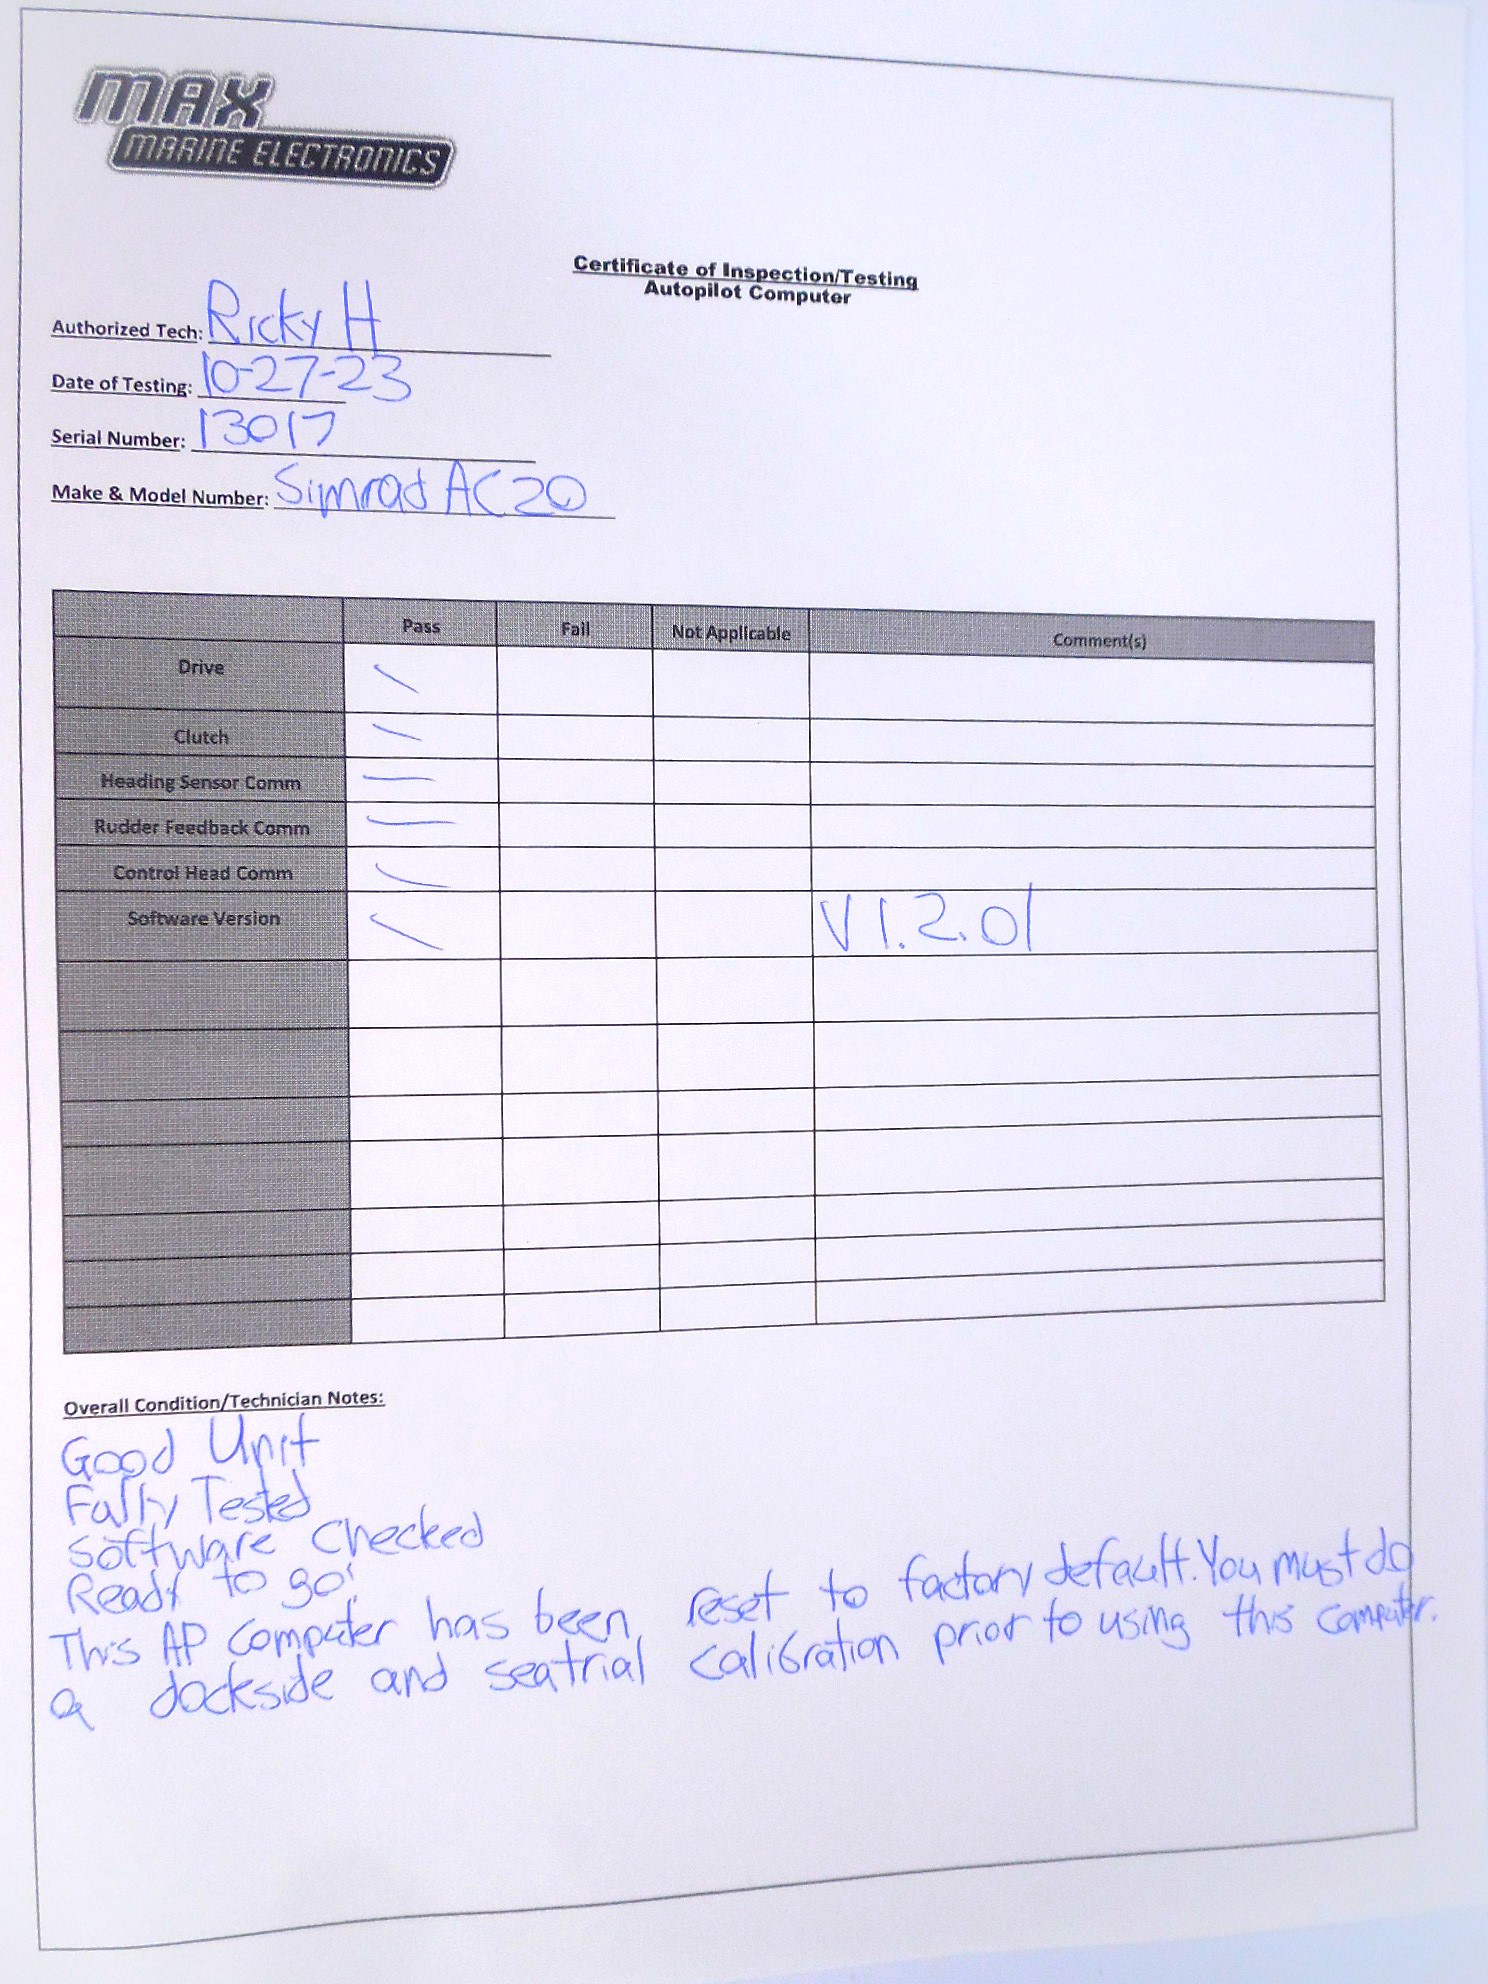 MAX
MARINE ELECTRONICS
Certificate of Inspection/Testing
Autopilot Computer
Authorized Tech: Ricky H
Date of Testing: 10-27-23
Serial Number: 13017
Make & Model Number: Simrad AC20
Pass Fail Not Applicable Comment(s)
Drive
Clutch
Heading Sensor Comm
Rudder Feedback Comm
Control Head Comm
Software Version V1.2.01
Overall Condition/Technician Notes:
Good Unit
Fully Tested
Software Checked
Ready to go!
This AP computer has been reset to factory default. You must do
a dockside and seatrial calibration prior to using this computer.